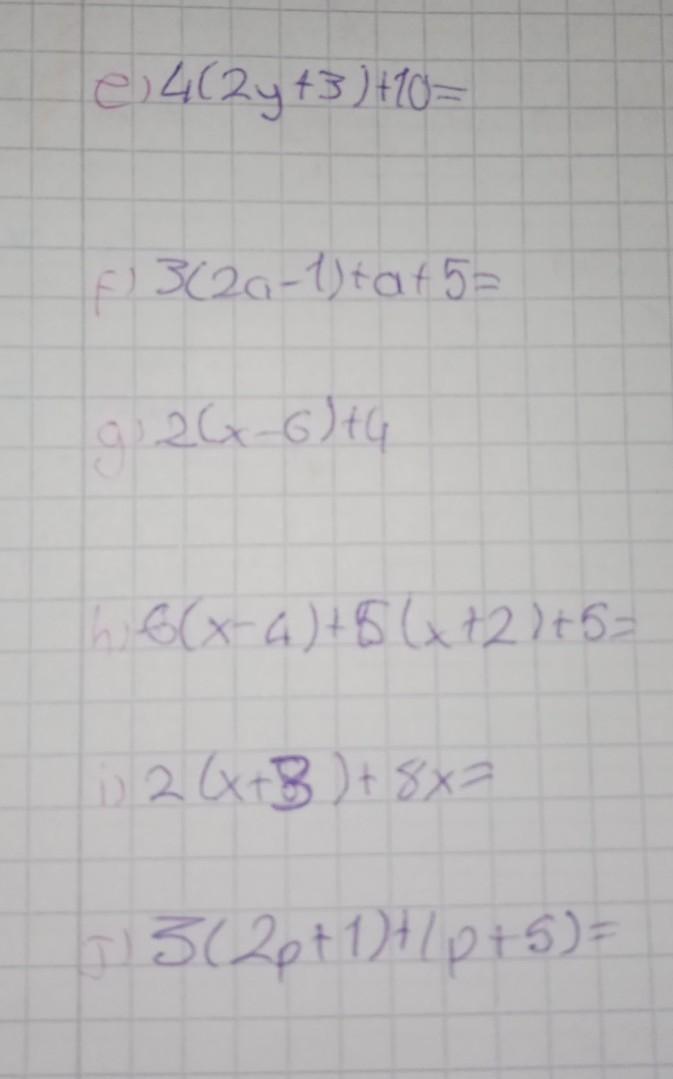 e) 4(2y+3)+10=
f) 3(2a-1)+a+5=
g) 2(x-6)+4
h) 6(x-4)+5(x+2)+5=
i) 2(x+3)+8x=
j) 3(2p+1)+(p+5)=